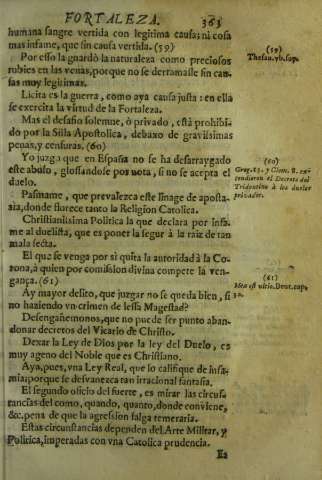 FORTALEZA. 363
humana sangre vertida con legitima causa; ni cosa
mas infame, que sin causa vertida. (59)
Por esso la guardò la naturaleza como preciosos
rubies en las venas, porque no se derramasse sin cau-
sas muy legitimas.
Licita es la guerra, como aya causa justa: en ella
se exercita la virtud de la Fortaleza.
Mas el desafio solemne, ò privado, està prohibi-
do por la Silla Apostolica, debaxo de gravissimas
penas, y censuras. (60)
Yo juzgo que en España no se ha desarraygado
este abuso, glossandose por nota, si no se acepta el
duelo.
Pasmame, que prevalezca este linage de aposta-
sia, donde florece tanto la Religion Catolica.
Christianissima Politica la que declara por infa-
me al duelista, que es poner la segur à la raiz de tan
mala secta.
El que se venga por si quita la autoridad à la Co-
rona, à quien por comission divina compete la ven-
gança. (61)
Ay mayor delito, que juzgar no se queda bien, si
no haziendo vn crimen de lessa Magestad?
Desengañemonos, que no puede ser punto aban-
donar decretos del Vicario de Christo.
Dexar la Ley de Dios por la ley del Duelo, es
muy ageno del Noble que es Christiano.
Aya, pues, vna Ley Real, que lo califique de infa-
mia; porque se desvanezca tan irracional fantasia.
El segundo oficio del fuerte, es mirar las circuns-
tancias del como, quando, quanto, donde conviene,
&c. pena de que la agresion salga temeraria.
Estas circunstancias dependen del Arte Militar, y
Politica, imperadas con vna Catolica prudencia.
Es
(59)
Thesau. vb. sup.
(60)
Greg. 13. y Clem. 8. ext-
endieron el Decreto del
Tridentino à los duelos
privados.
(61)
Mea est ultio. Deut. cap.
32.